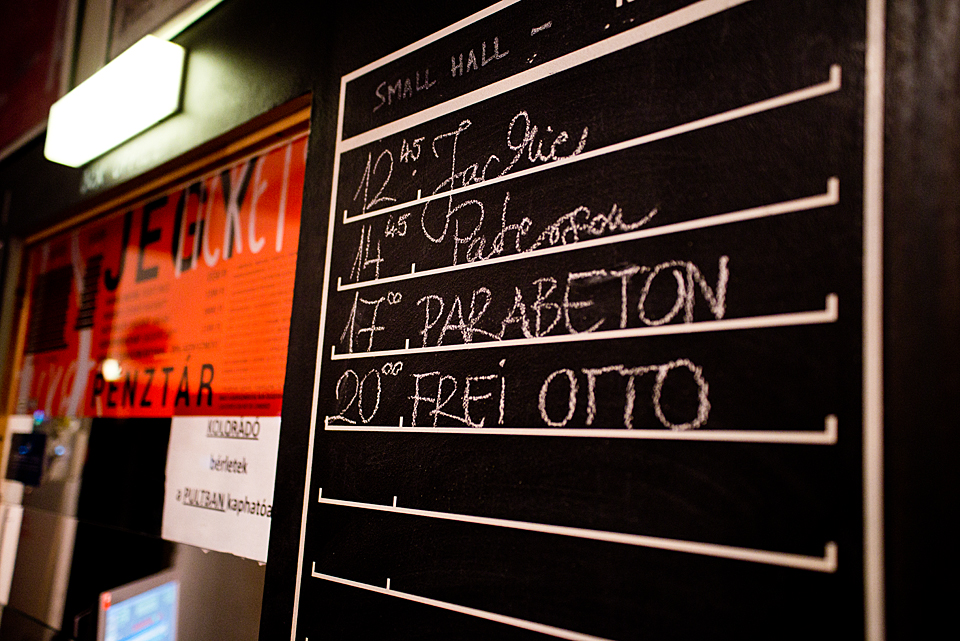 SMALL HALL -
12 45 Jackie
14 45 Paterson
17 00 PARABETON
20 00 FREI OTTO
JE
ticket
PÉNZTÁR
KOLORÁDÓ
bérletek
a PULTBAN kapható